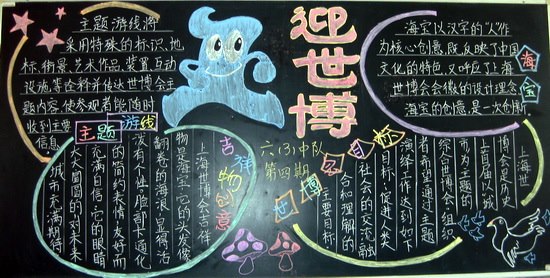 主题游线将
采用特殊的标识、地
标、街景、艺术作品、装置、互动
设施、等各种并传达世博会主
题内容,使参观者能随时
收到主要
信息
主题游线
迎世博
六(3)中队
第四期
海宝以汉字的“人”作
为核心创意,既反映了中国
文化的特色,又呼应了上海
世博会会徽的设计理念
海宝的创意,是一次创新
海宝
吉祥物创意
上海世博会吉祥
物是海宝,它的头发像
翻卷的海浪,显得活
泼有个性,脸部卡通化
的简约表情,友好而
充满自信,它的眼睛
大大、圆圆的,对未来
城市充满期待
世博会目标
上海世
博会是历史
上首届以“城
市”为主题的
综合世博会,组织
者希望通过主题
演绎工作达到如下
目标,促进人类
社会的交流融
合和理解的
主要目标